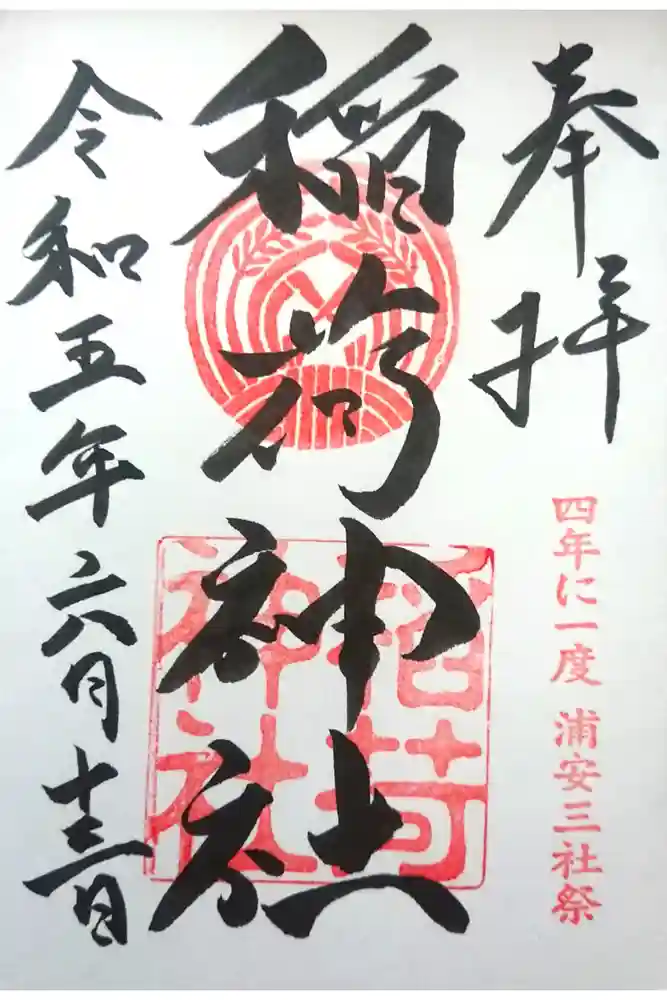 奉拝
四年に一度 浦安三社祭
稲荷神社
稲荷神社
令和五年六月十三日